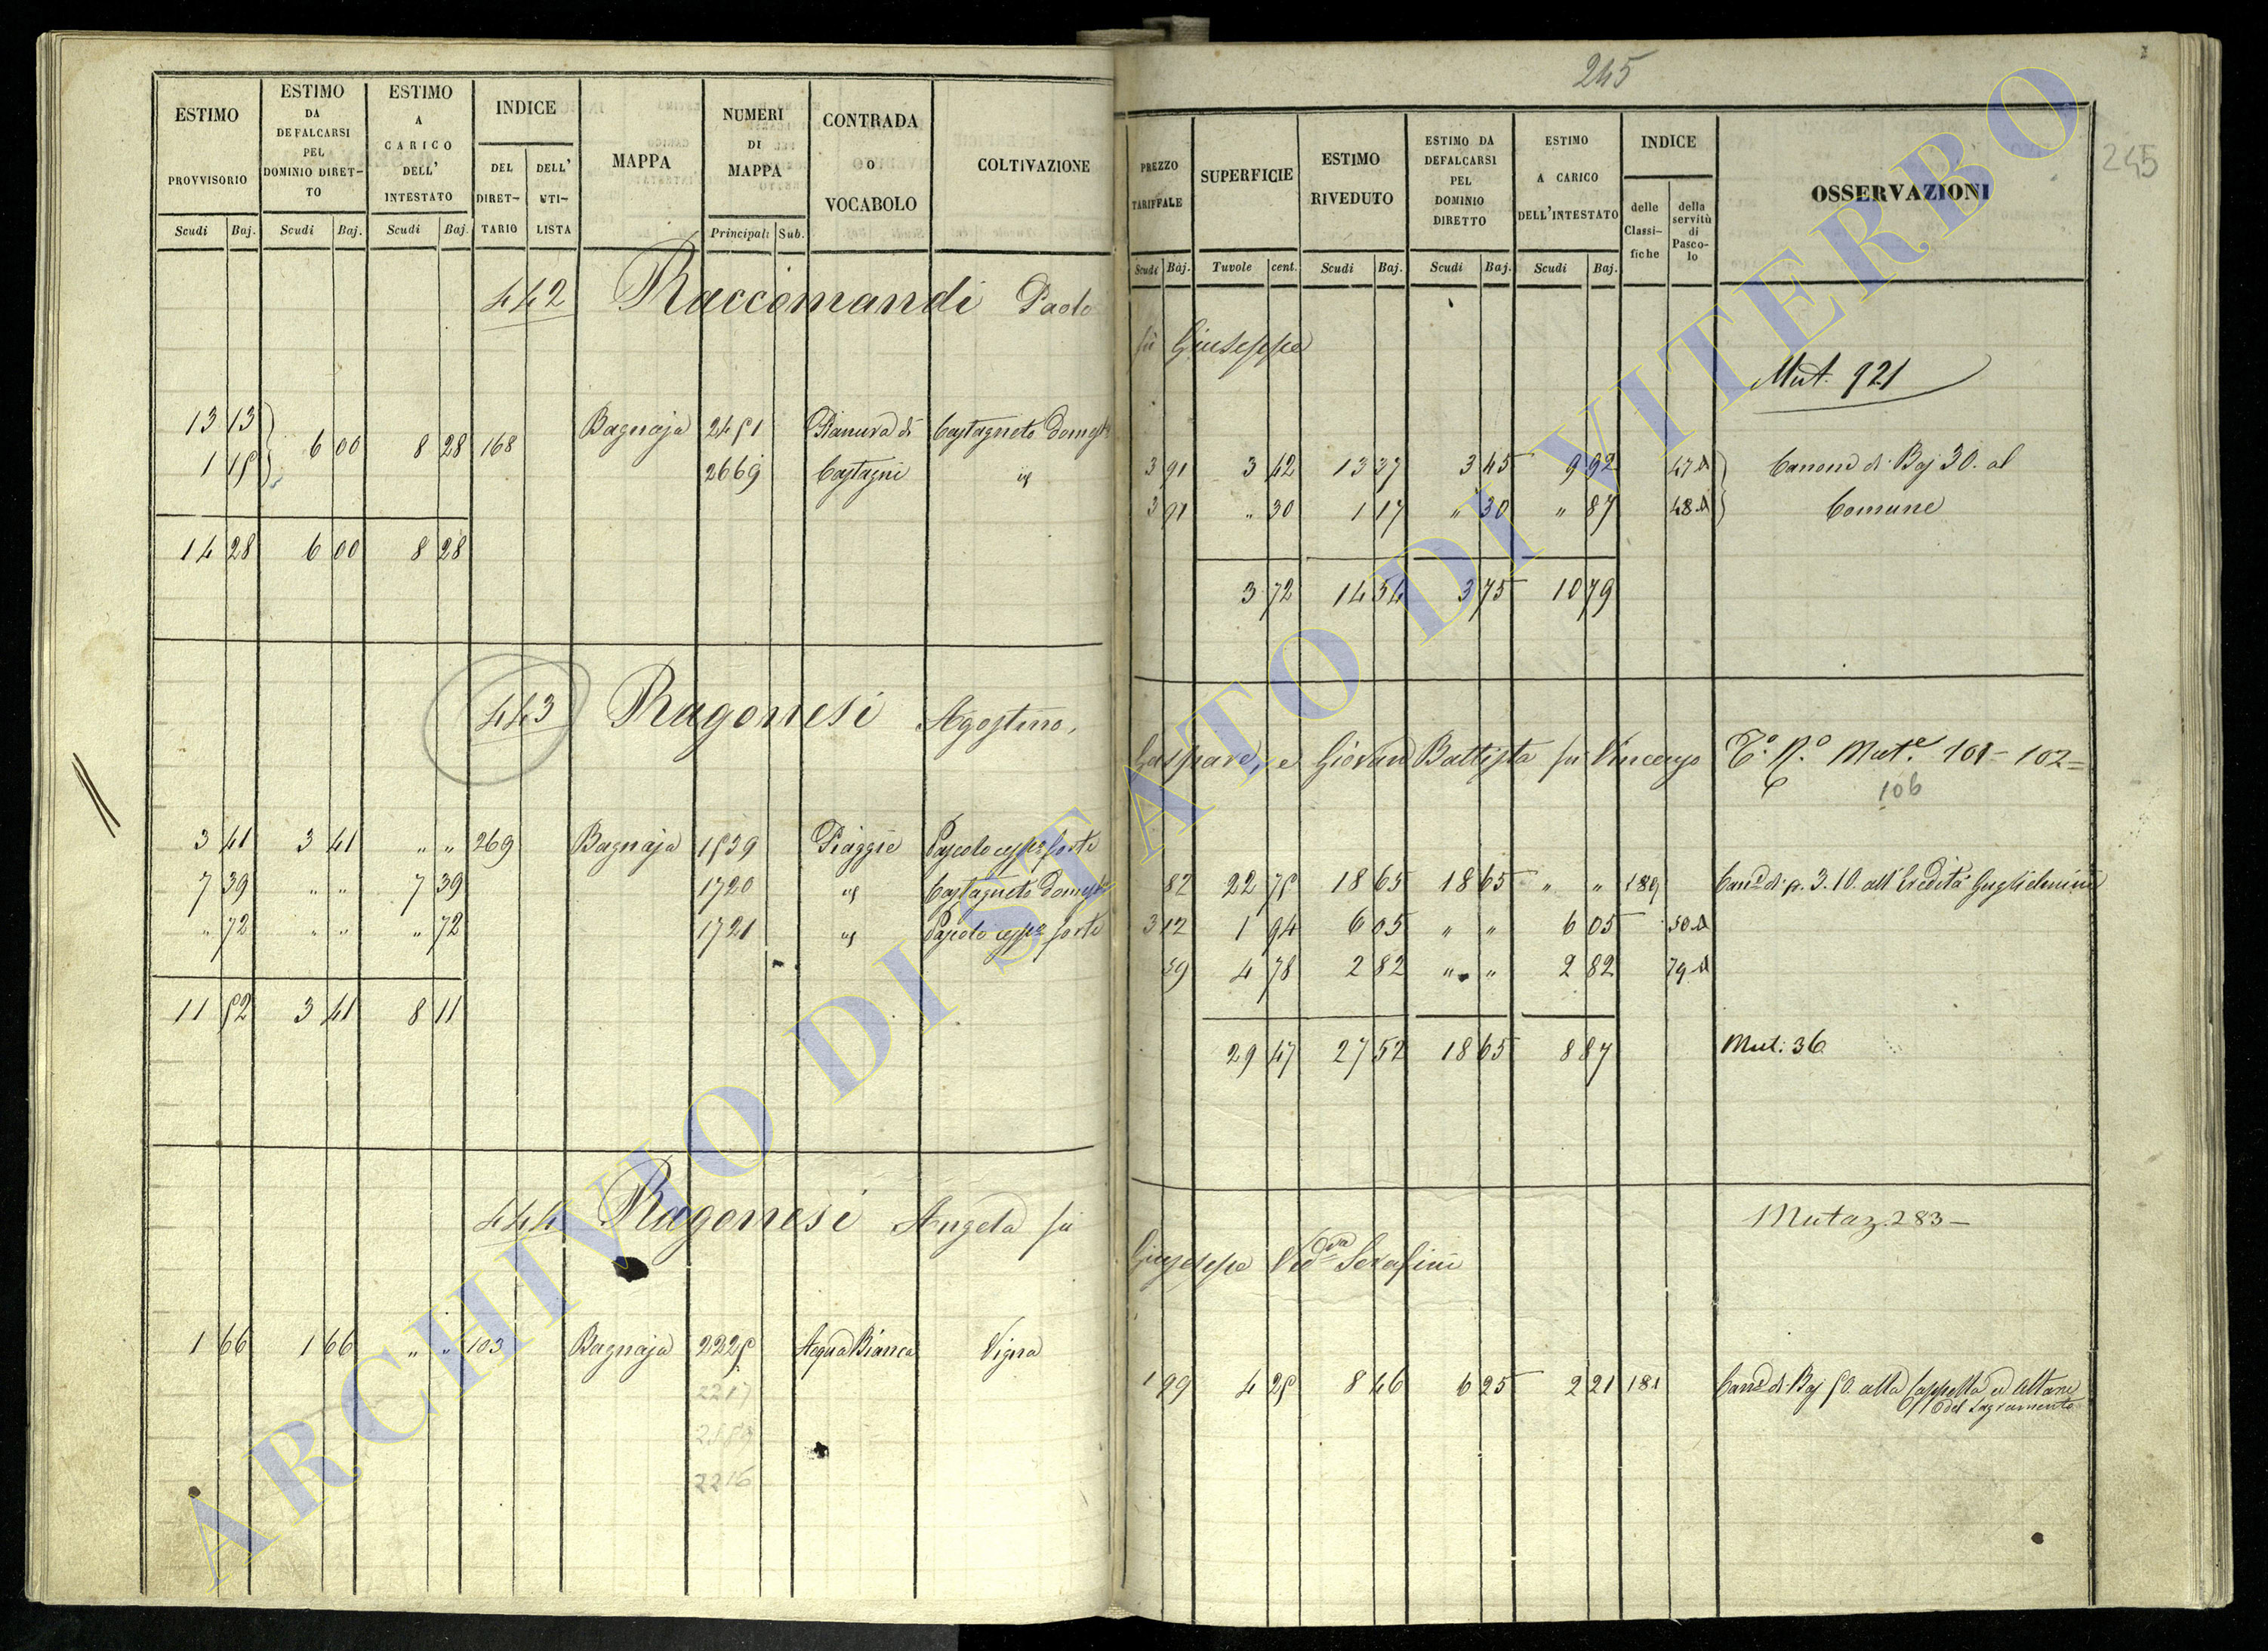 245
245
ESTIMO PROVVISORIO Scudi Baj.
ESTIMO DA DEFALCARSI PEL DOMINIO DIRETTO Scudi Baj.
ESTIMO A CARICO DELL' INTESTATO Scudi Baj.
INDICE DEL DIRETTARIO DELL' UTILISTA
MAPPA
NUMERI DI MAPPA Principali Sub.
CONTRADA o VOCABOLO
COLTIVAZIONE
PREZZO TARIFFALE Scudi Baj.
SUPERFICIE Tuvole cent.
ESTIMO RIVEDUTO Scudi Baj.
ESTIMO DA DEFALCARSI PEL DOMINIO DIRETTO Scudi Baj.
ESTIMO A CARICO DELL'INTESTATO Scudi Baj.
INDICE delle Classifiche della servitù di Pascolo
OSSERVAZIONI
442 Raccomandi Paolo fù Giuseppe
Mut. 921
13 13 6 00 8 28 168 Bagnaja 2451 Pianura di Castagneto Domest 3 91 3 42 13 37 3 45 9 92 47 A Canone di Baj 30. al
1 15 2669 Castagni id 3 91 " 30 1 17 " 30 " 87 48 A Comune
14 28 6 00 8 28 3 72 14 54 3 75 10 79
443 Ragonesi Agostino, Gaspare, e Giovan Battista fù Vincenzo Mut.e 101 - 102 =
106
3 41 3 41 " " 269 Bagnaja 1539 Piaggie Pascolo cesp.o forte 82 22 75 18 65 18 65 " " 189 Can.e di s. 3.10. all'Eredità Guglielmini
7 39 " " 7 39 1720 id Castagneto Domest 3 12 1 94 6 05 " " 6 05 50 A
" 72 " " " 72 1721 id Pascolo cesp.o forte 59 4 78 2 82 " " 2 82 79 A
11 52 3 41 8 11 29 47 27 52 18 65 8 87 Mut: 36
444 Ragonesi Angela fù Giuseppe Ved.va Serafini
Mutaz. 283 -
1 66 1 66 " " 103 Bagnaja 2225 Acqua Bianca Vigna 1 99 4 25 8 46 6 25 2 21 181 Can.e di Baj 50. alla Cappella ed Altare
del Sagramento
2217
2216
ARCHIVIO DI STATO DI VITERBO